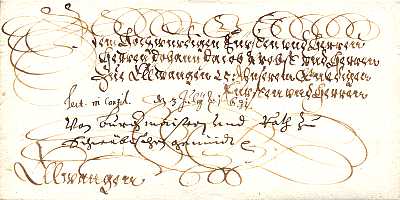 dem Hochwürdigen Fürsten und Herren
Herren Johann Jacob Probst und Herren
Zue Ellwangen Unserm Gnedigen
Fürsten und Herren
Lect. in Consil. den 3 1631
Von Burgermaister und Rath zu
Schwäbischen gemündt
Ellwangen